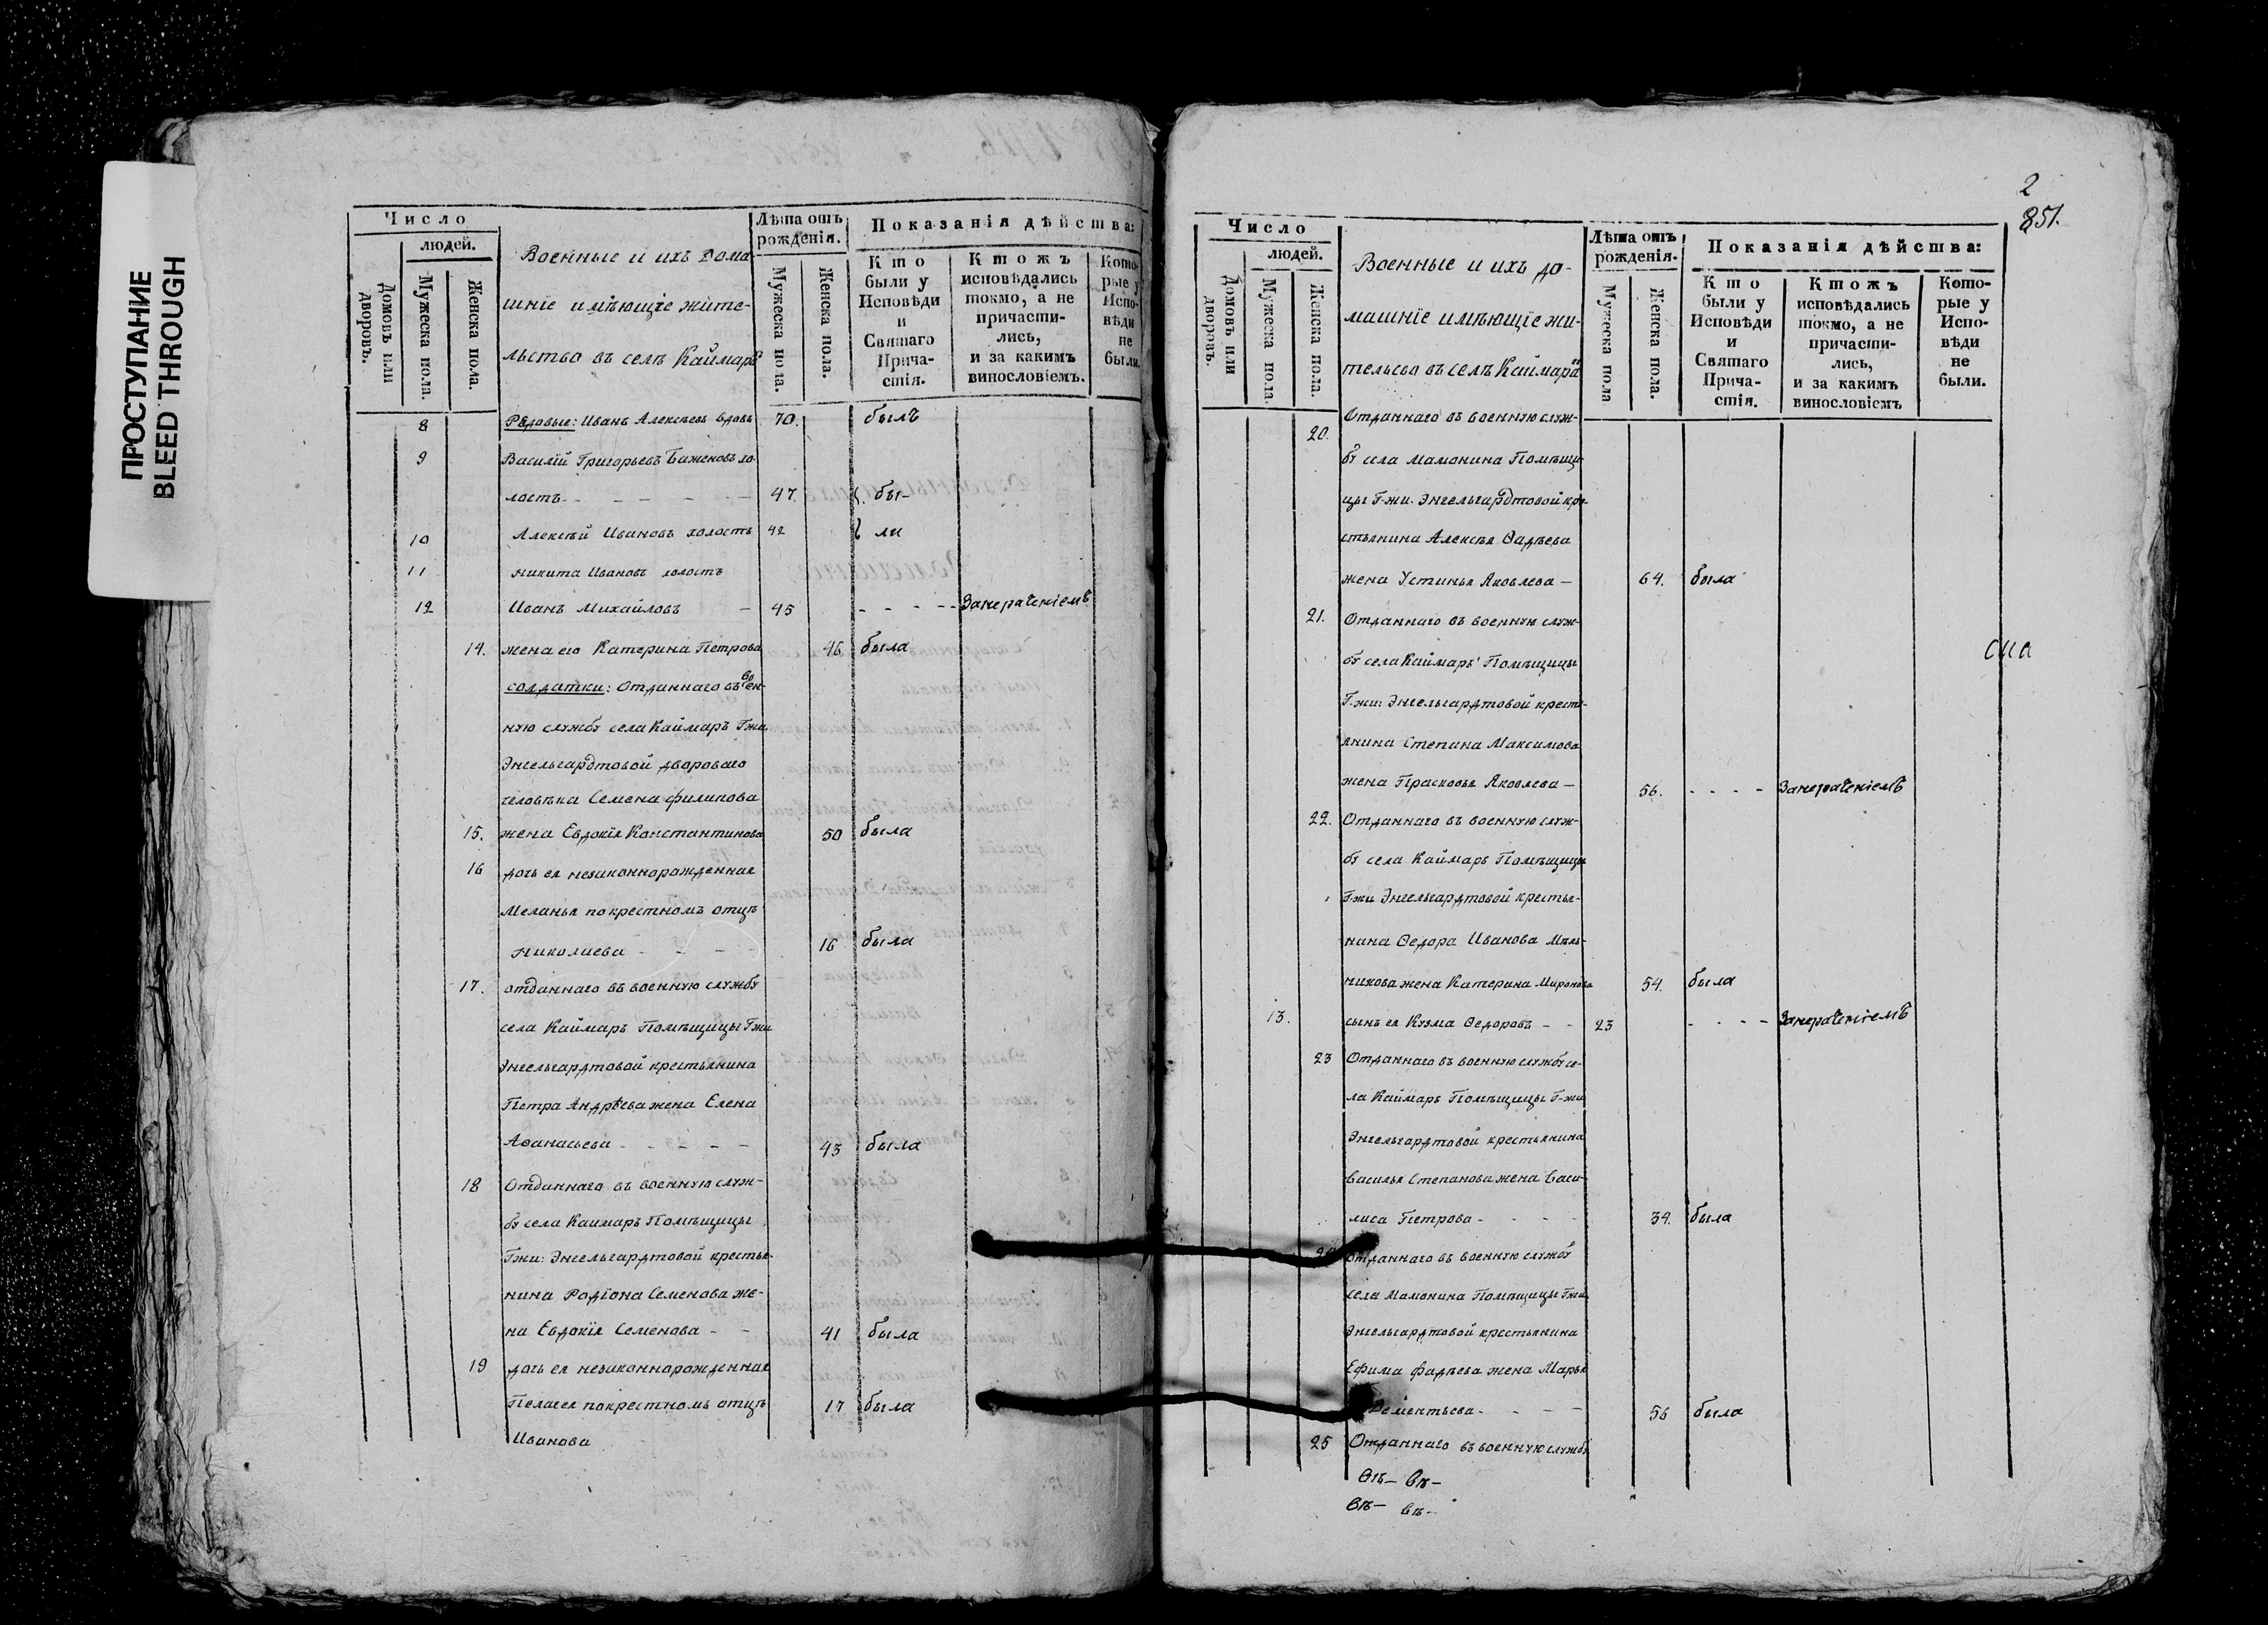 ПРОСТУПАНИЕ
BLEED THROUGH
Число
людей.
Домовъ или дворовъ.
Мужеска пола.
Женска пола.
Военные и ихъ дома-
шніе имѣющіе жите-
льство въ селѣ Каймарѣ
Лѣта отъ рожденія.
Мужеска пола.
Женска пола.
Показанія дѣйства:
Кто были у Исповѣди и Святаго Прича-стія.
Ктожъ исповѣдались токмо, а не причасти-лись, и за какимъ винословіемъ.
Кото-рые у Испо-вѣди не были.
8 Рядовые: Иванъ Алексѣевъ вдовъ 70. былъ
9 Василій Григорьевъ Баженовъ хо-
лостъ - - - - - 47. бы-
10 Алексѣй Ивановъ холостъ 42 ли
11 Никита Ивановъ холостъ
12 Иванъ Михайловъ - 45 - - - - Занераченіемъ
14. жена его Катерина Петрова 46 была
солдатки: Отданнаго въ воен-
ную службу села Каймаръ Гжи
Энгельгардтовой двороваго
человѣка Семена Филипова
15. жена Евдокія Константинова 50 была
16 дочь ея незаконнорожденная
Меланья по крестномъ отцѣ
Николаева - - - - 16 была
17. отданнаго въ военную службу
села Каймаръ Помѣщицы Гжи
Энгельгардтовой крестьянина
Петра Андрѣева жена Елена
Аѳанасьева - - - - - 43 была
18 Отданнаго въ военную служ-
бу села Каймаръ Помѣщицы
Гжи: Энгельгардтовой крестья-
нина Родіона Семенова же-
на Евдокія Семенова - - 41 была
19 дочь ея незаконнорожденная
Пелагея по крестномъ отцѣ 17 была
Иванова
2
851.
Число
людей.
Домовъ или дворовъ.
Мужеска пола.
Женска пола.
Военные и ихъ до-
машніе имѣющіе жи-
тельсво въ селѣ Каймарѣ
Лѣта отъ рожденія.
Мужеска пола
Женска пола.
Показанія дѣйства:
Кто были у Исповѣди и Святаго Прича-стія.
Ктожъ исповѣдались токмо, а не причасти-лись, и за какимъ винословіемъ
Кото-рые у Испо-вѣди не были.
20. Отданнаго въ военную служ-
бу села Мамонина Помѣщи-
цы Г-жи. Энгельгардтовой кре-
стьянина Алексѣя Ѳадѣева
жена Устинья Яковлева - 64. была
21. Отданнаго въ военную служ-
бу села Каймаръ Помѣщицы
Г-жи: Энгельгардтовой кресть-
янина Степана Максимова
жена Прасковья Яковлева - 56. - - - - Занераченіемъ
22. Отданнаго въ военную служ-
бу села Каймаръ Помѣщицы
Г-жи Энгельгардтовой крестья-
нина Ѳедора Иванова Мель-
никова жена Катерина Миронова 54. была
13. сынъ ея Кузма Ѳедоровъ - - 23 - - - - Занераченіемъ
23 Отданнаго въ военную службу се-
ла Каймаръ Помѣщицы Г-жи
Энгельгардтовой крестьянина
Василья Степанова жена Васи-
лиса Петрова - - - - 34. была
24 Отданнаго въ военную службу
села Мамонина Помѣщицы Гжи
Энгельгардтовой крестьянина
Ефима Фадѣева жена Марья
Дементьева - - - - 56 была
25 Отданнаго въ военную службу